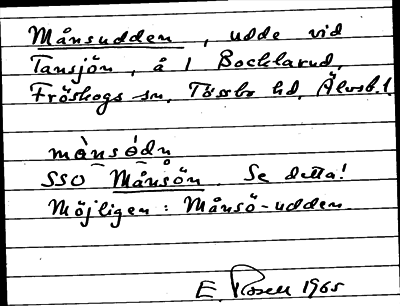 Månsudden, udde vid
Tansjön, å 1 Bocklarud,
Fröskogs sn, Tössbo hd, Älvsb. l.
mȯnsȯdn
SSO Månsön. Se detta!
Möjligen: Månsö-udden
E. Rosell 1965